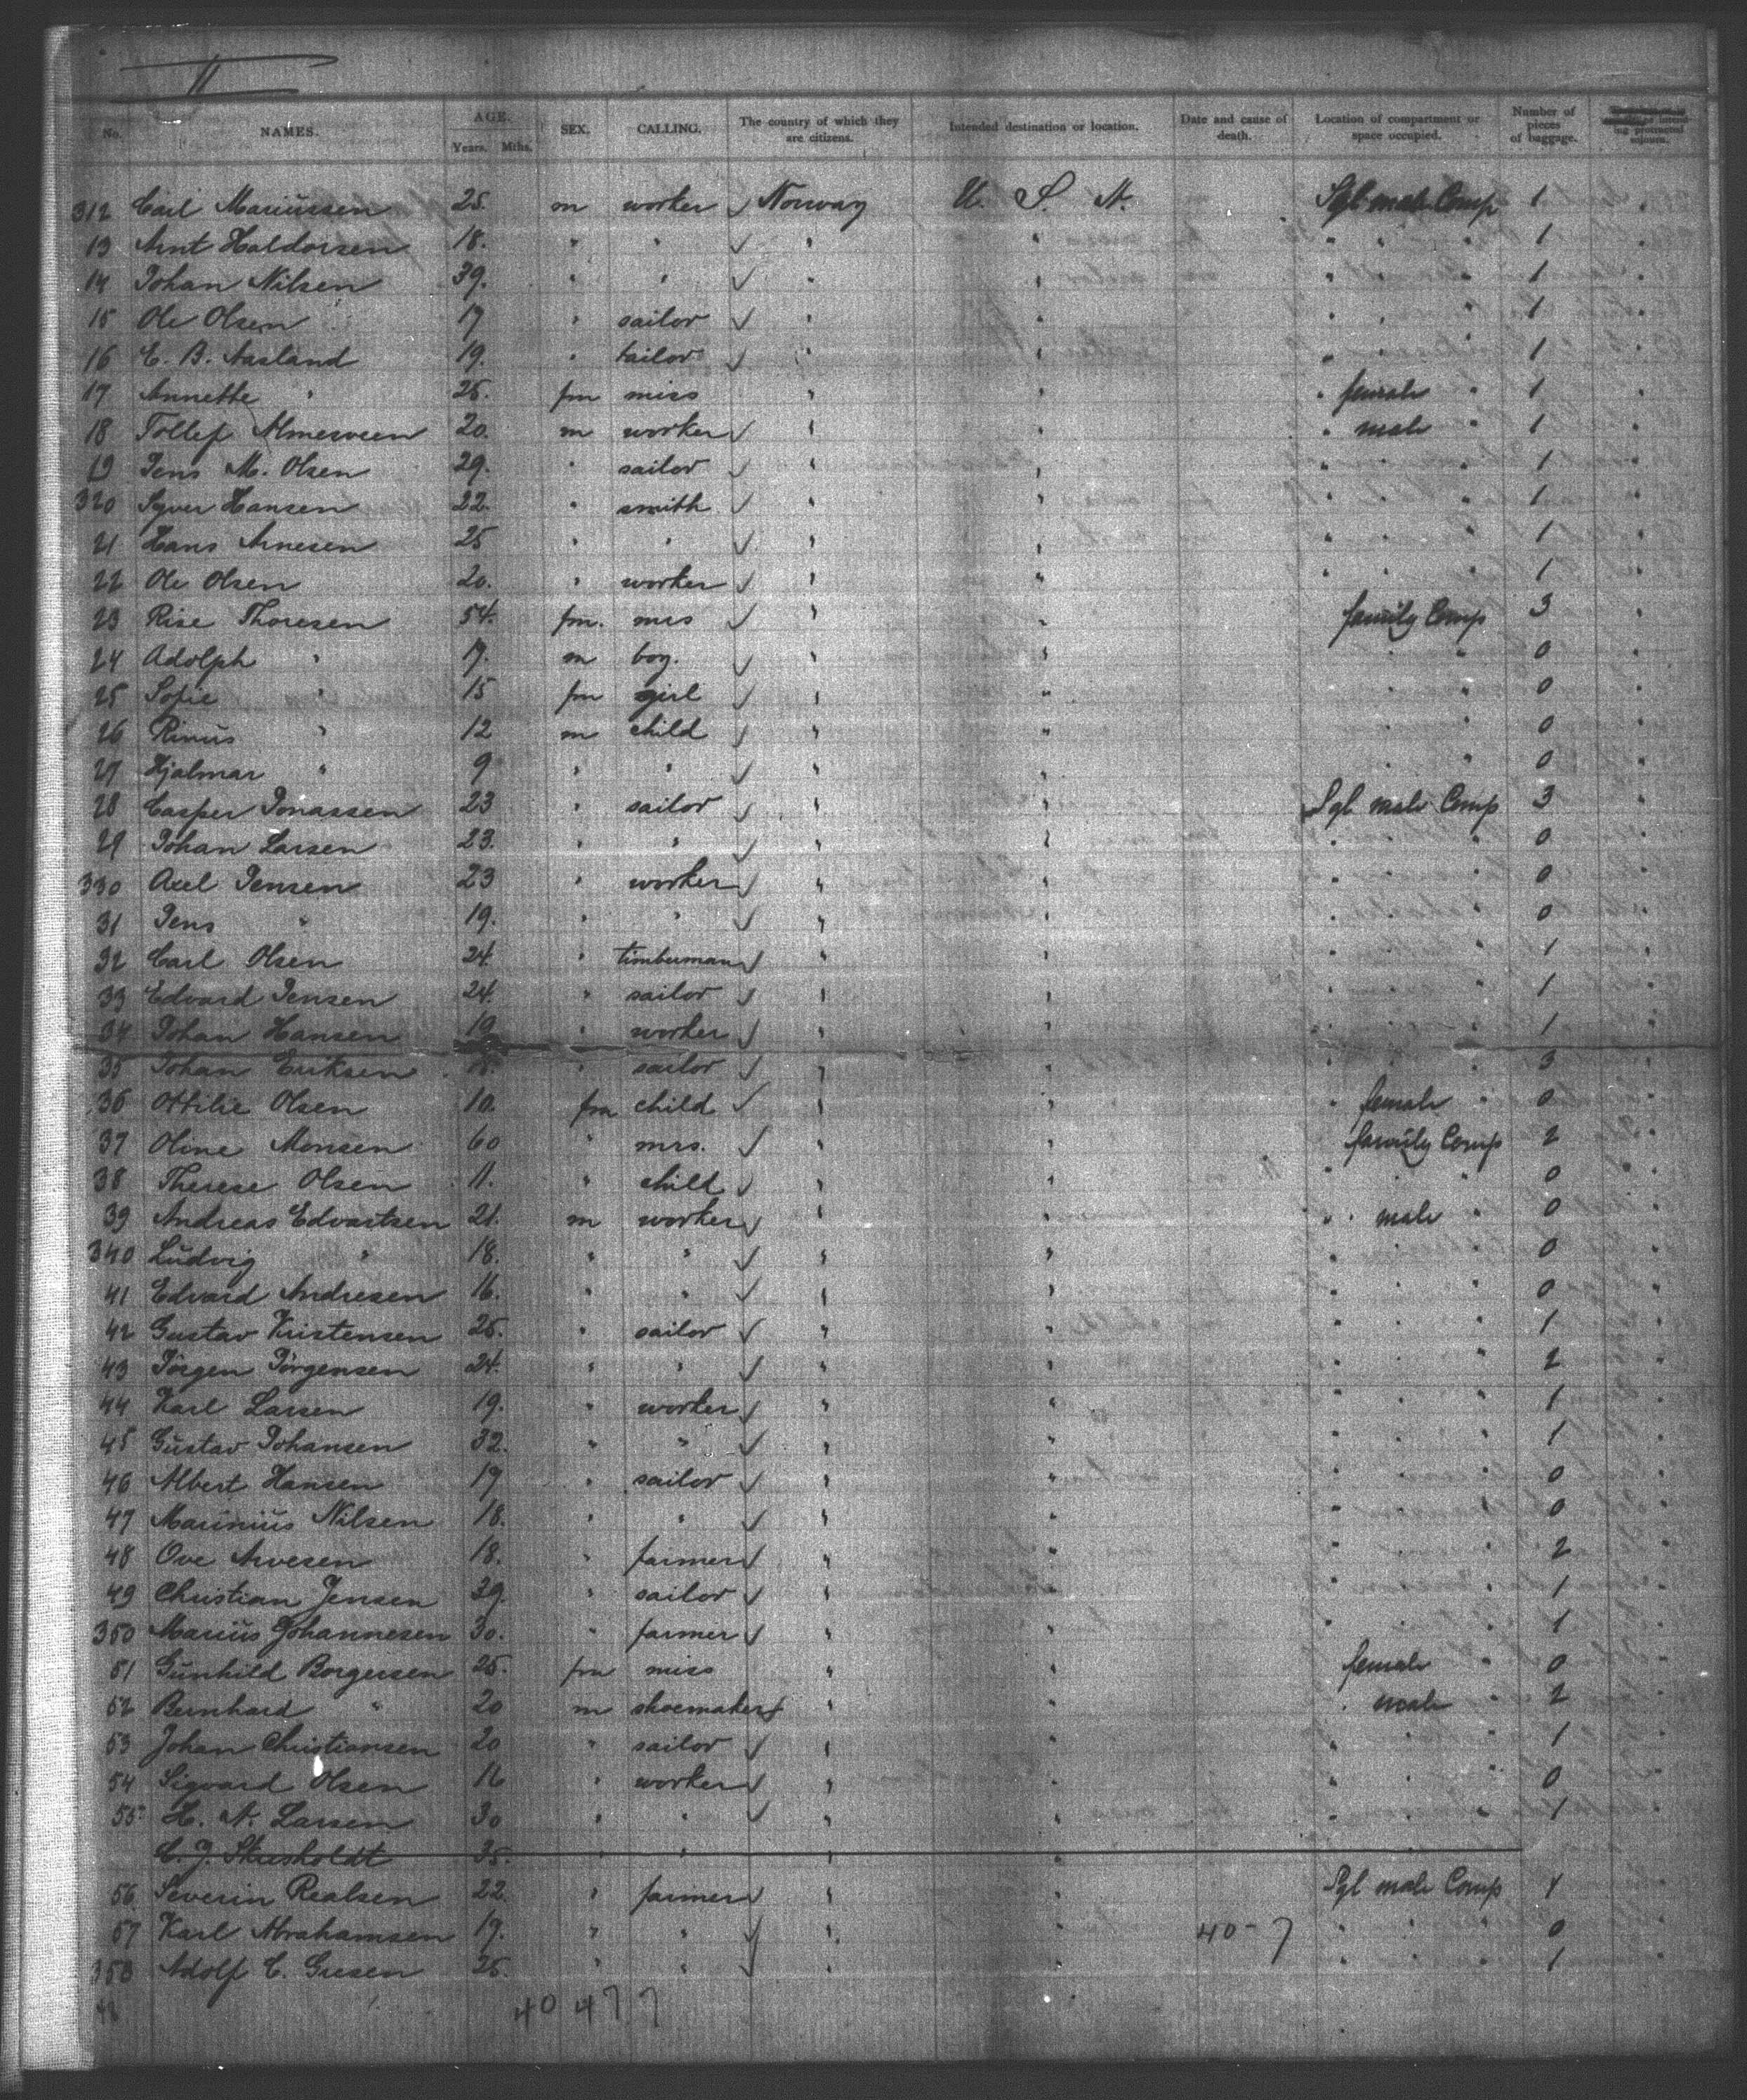 II
No. NAMES. AGE. Years. Mths. SEX. CALLING. The country of which they are citizens. Intended destination or location. Date and cause of death. Location of compartment or space occupied. Number of pieces of baggage.
312 Carl Mariussen 25. m worker ✓ Norway U. S. A. Sgl male Comp 1
13 Arnt Haldorsen 18. " " ✓ " " " " " 1
14 Johan Nilsen 39. " " ✓ " " " " " 1
15 Ole Olsen 17 " sailor ✓ " " " " " 1
16 E. B. Aasland 19. " tailor ✓ " " " " " 1
17 Annette " 25. fm miss " " " female " 1
18 Tollef 20. m worker ✓ " " " male " 1
19 Jens M. Olsen 29. " sailor ✓ " " " " " 1
320 Syver Hansen 22. " smith ✓ " " " " " 1
21 Hans Arnesen 25 " " ✓ " " " " " 1
22 Ole Olsen 20. " worker ✓ " " " " " 1
23 Rise Thoresen 54. fm. mrs ✓ " " family Comp 3
24 Adolph " 17. m boy. ✓ " " " " 0
25 Sofie " 15 fm girl ✓ " " " " 0
26 Rinus " 12 m child ✓ " " " " 0
27 Hjalmar " 9 " " ✓ " " " " 0
28 Casper Jonassen 23 " sailor ✓ " " Sgl male Comp 3
29 Johan Larsen 23. " " ✓ " " " " " 0
330 Axel Jensen 23 " worker ✓ " " " " " 0
31 Jens " 19. " " ✓ " " " " " 0
32 Carl Olsen 24. " timberman ✓ " " " " " 1
33 Edvard Jensen 24. " sailor ✓ " " " " " 1
34 Johan Hansen 19 " worker ✓ " " " " " 1
35 Johan Eriksen " sailor ✓ " " " " " 3
36 Ottilie Olsen 10. fm child ✓ " " " female " 0
37 Oline Monsen 60 " mrs. ✓ " " family Comp 2
38 Therese Olsen 11. " child ✓ " " " " " 0
39 Andreas Edvartsen 21. m worker ✓ " " " male " 0
340 Ludvig " 18. " " ✓ " " " " " 0
41 Edvard Andresen 16. " " ✓ " " " " " 0
42 Gustav Kristensen 25. " sailor ✓ " " " " " 1
43 Jörgen Jörgensen 24. " " ✓ " " " " " 2
44 Karl Larsen 19. " worker ✓ " " " " " 1
45 Gustav Johansen 32. " " ✓ " " " " " 1
46 Albert Hansen 17 " sailor ✓ " " " " " 0
47 Marinius Nilsen 18. " " ✓ " " " " " 0
48 Ove Arvesen 18. " farmer ✓ " " " " " 2
49 Christian Jensen 29. " sailor ✓ " " " " " 1
350 Marius Johannesen 30. " farmer ✓ " " " " " 1
51 Gunhild Borgersen 25. fm miss " " female " 0
52 Bernhard " 20 m shoemaker ✓ " " " male " 2
53 Johan Christiansen 20 " sailor ✓ " " " " " 1
54 Sigvard Olsen 16 " worker ✓ " " " " " 0
55 H. A. Larsen 30 " " ✓ " " " " " 1
C. J. 35. " " " "
56 Severin Realsen 22. " farmer ✓ " " Sgl male Comp 1
57 Karl Abrahamsen 19. " " ✓ " " 40-7 " " " 0
358 Adolf C. 25. " " ✓ " " " " 1
40 47 7